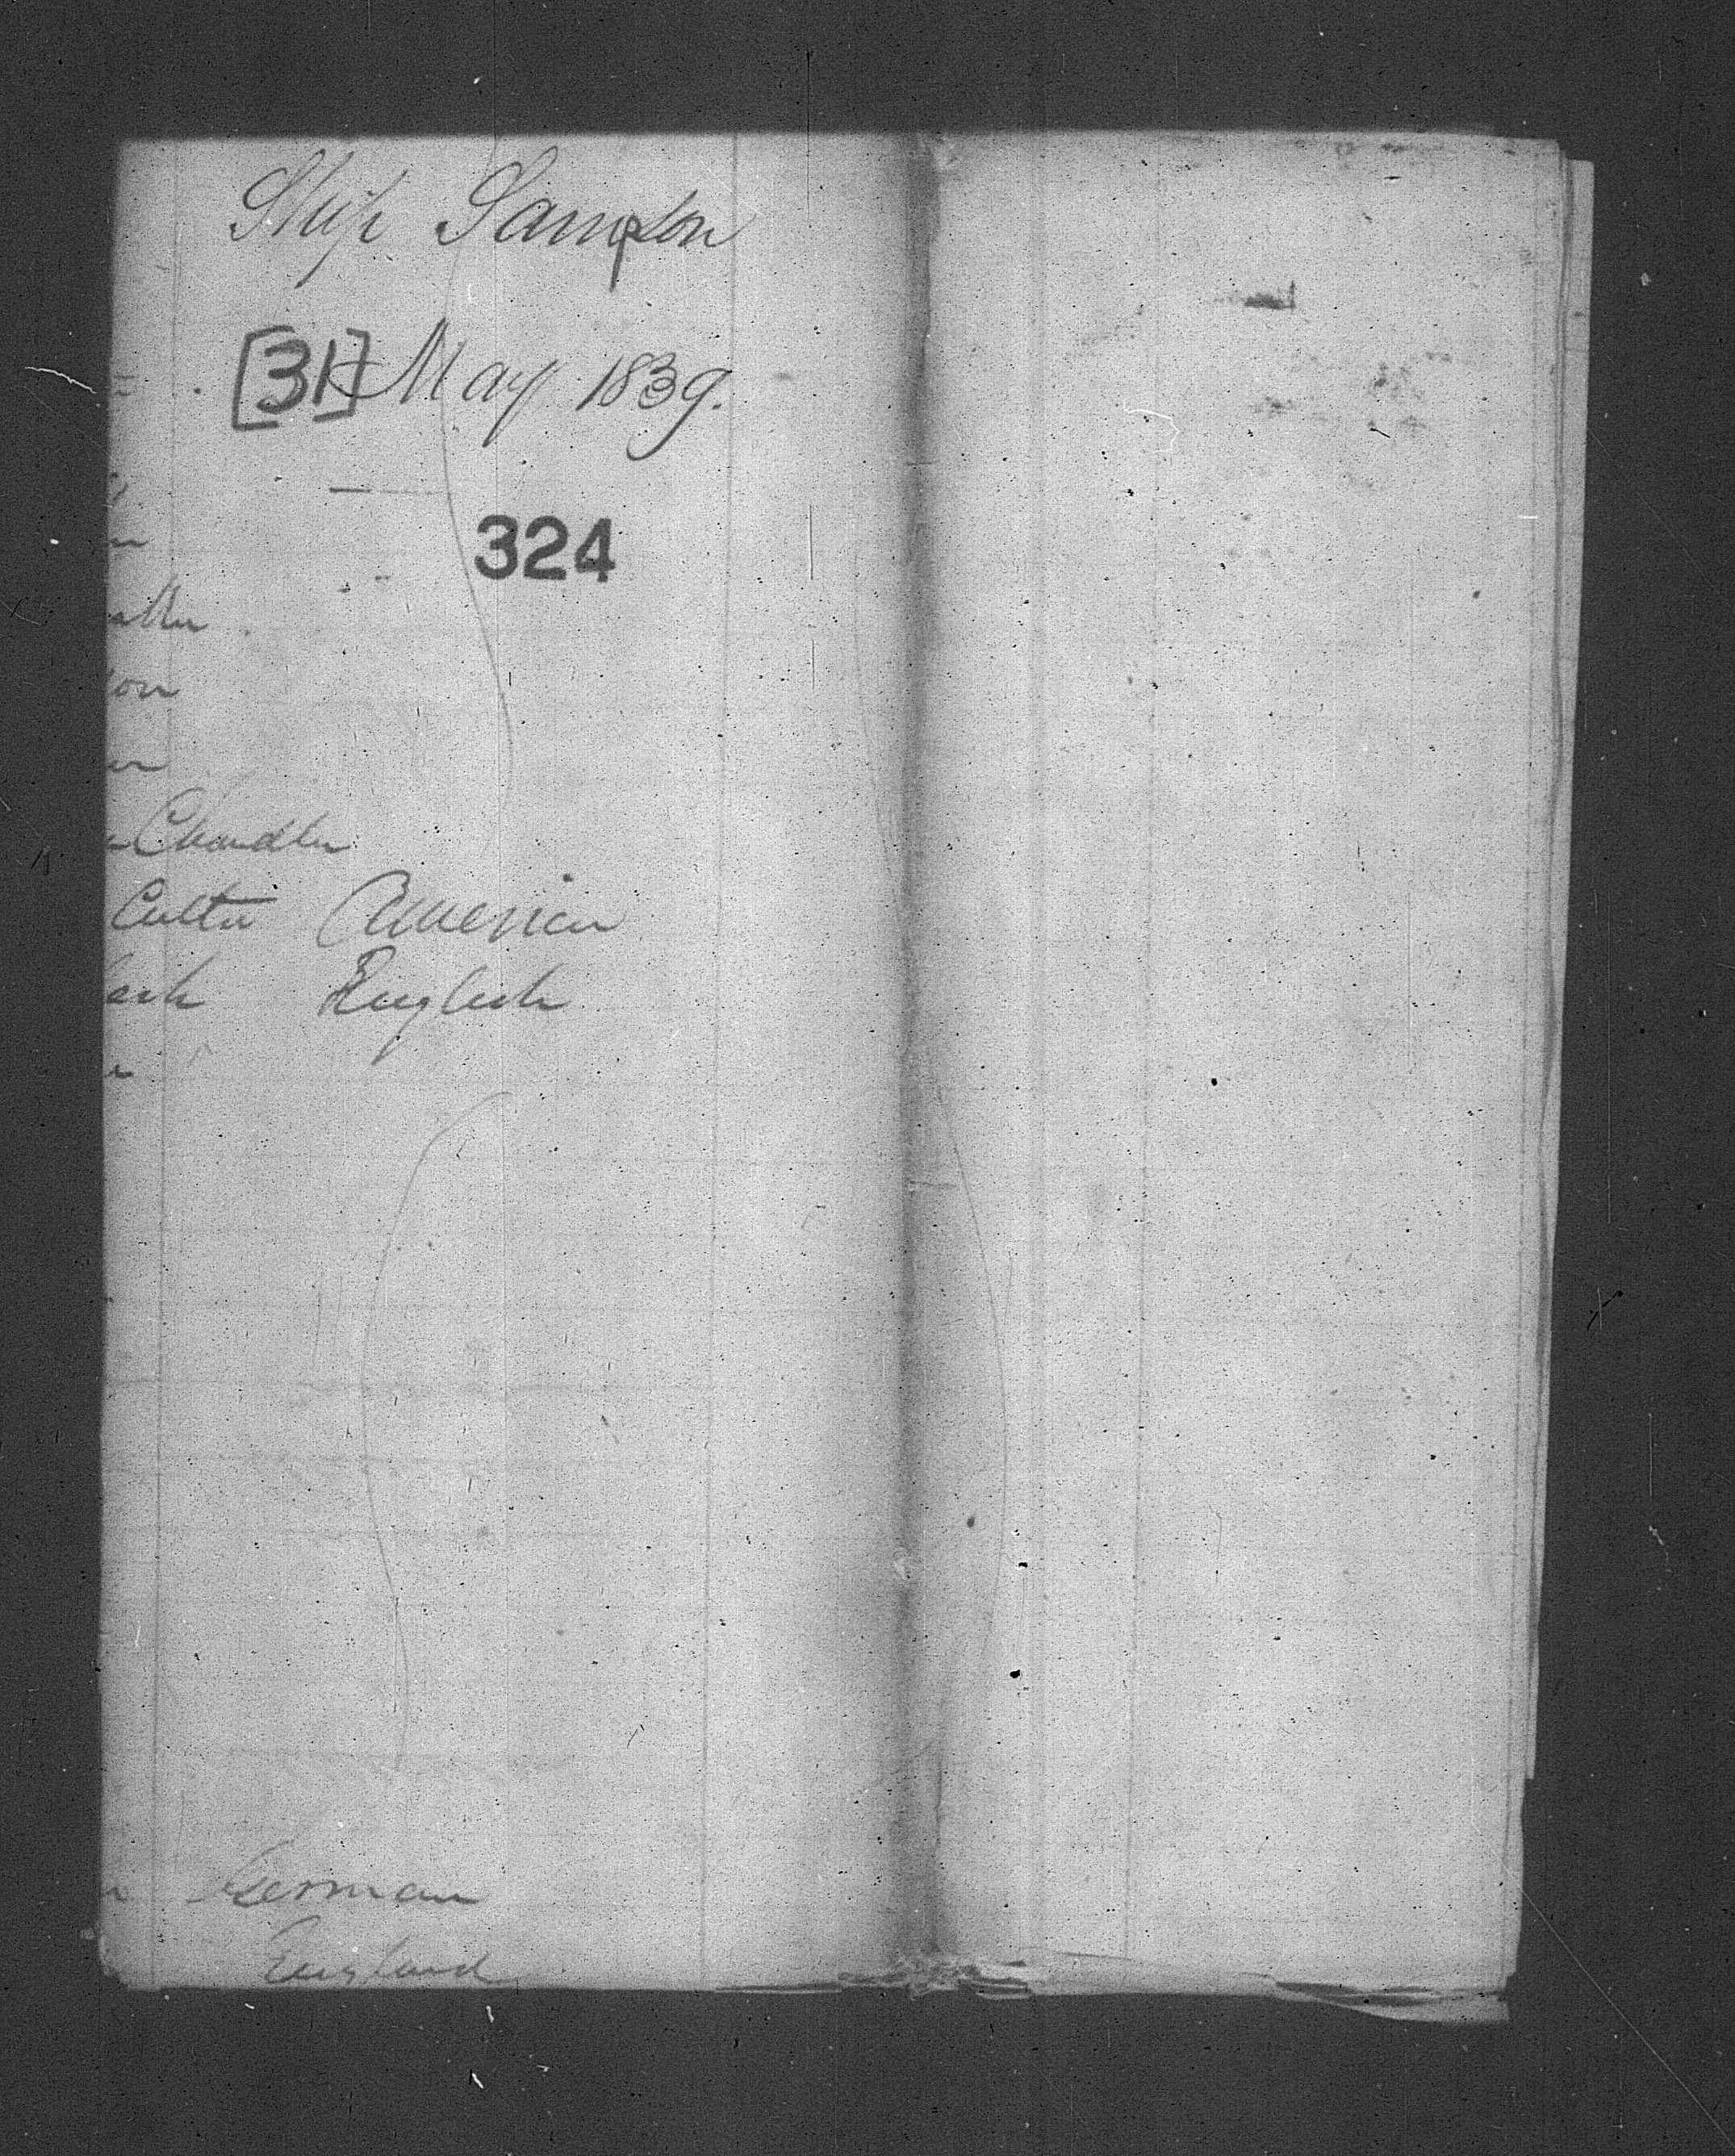 Ship Sampson
[31] May 1839.
324
on
er
Chandler
Cutter American
English
German
England